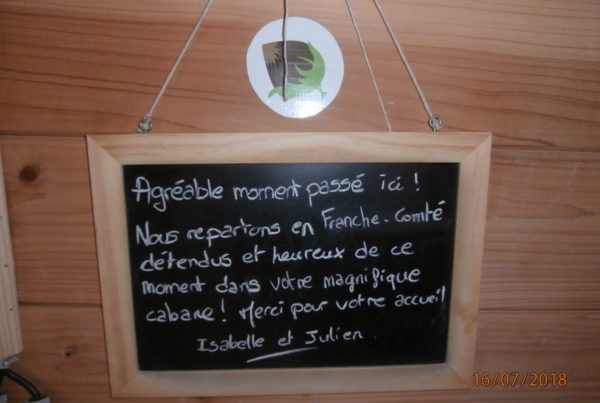 Agréable moment passé ici !
Nous repartons en Franche-Comté
détendus et heureux de ce
moment dans votre magnifique
cabane ! Merci pour votre accueil
Isabelle et Julien.
16/07/2018